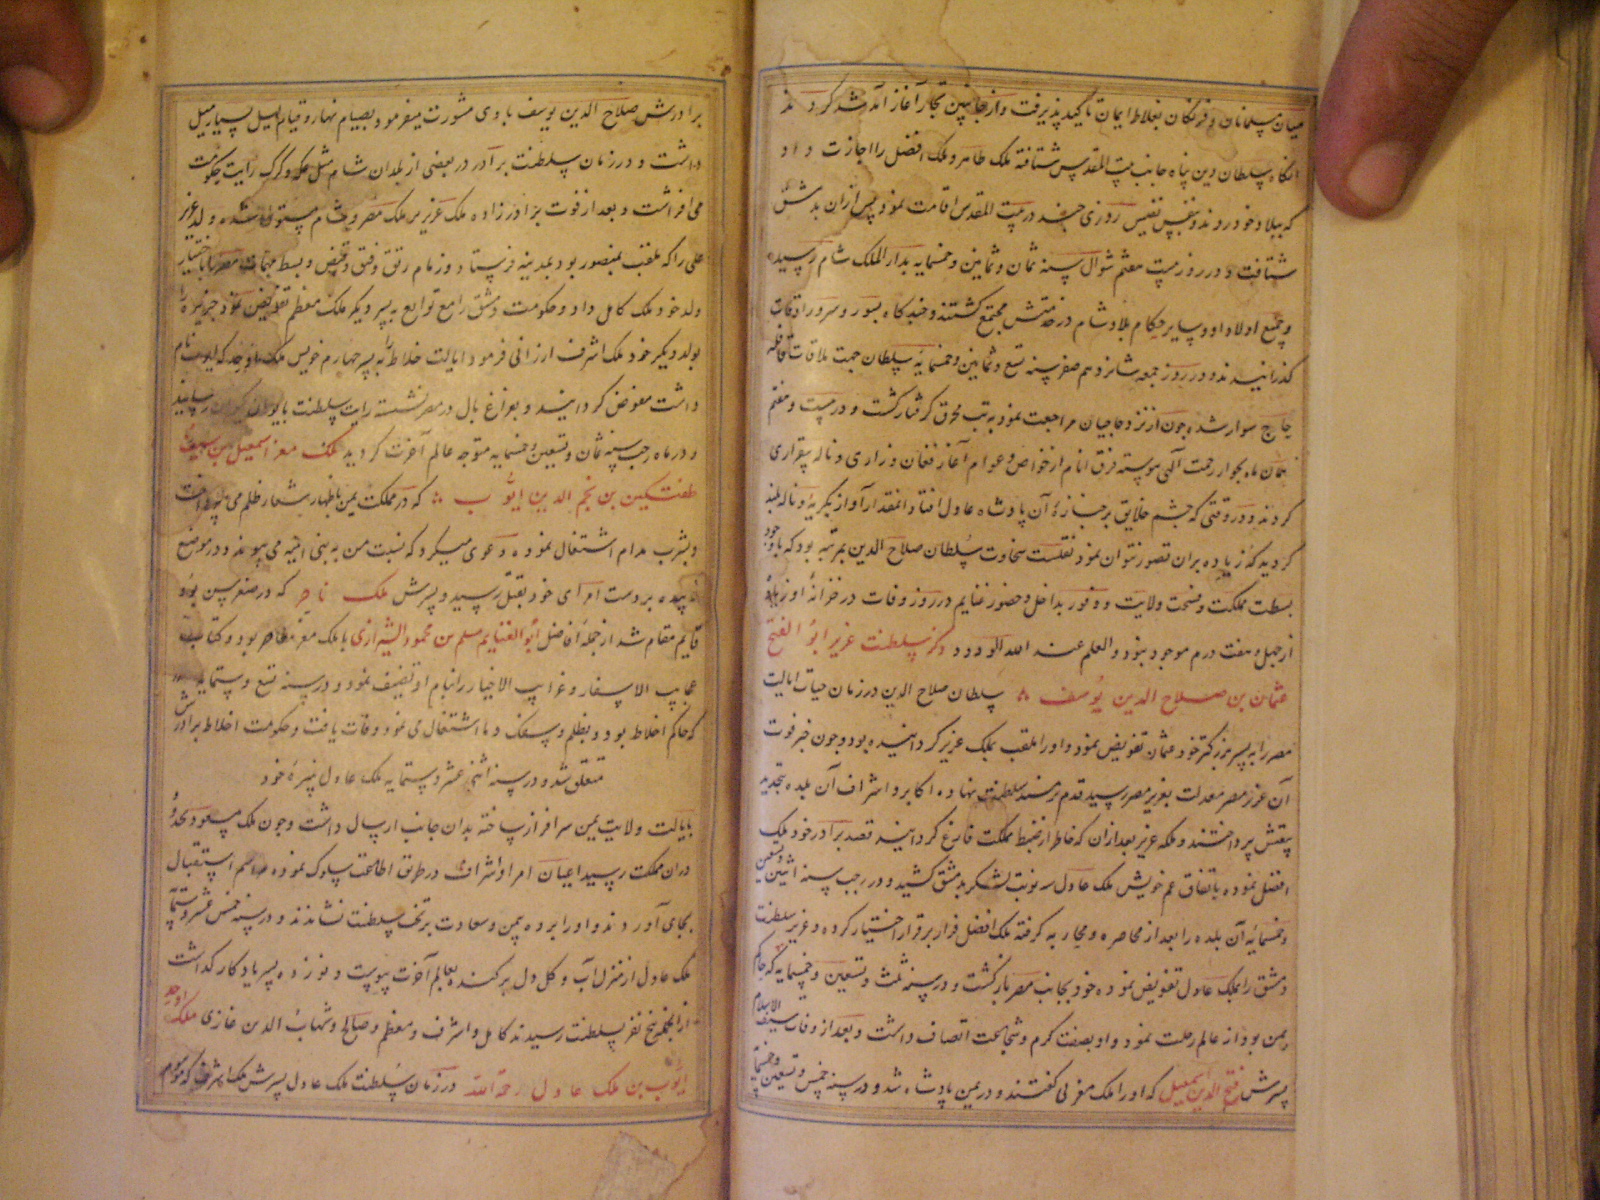 میان مسلمانان و فرنگان بغلاظ ایمان تاکید پذیرفت و از جانبین تجار آغاز آمد شد کردند
آنگاه سلطان دین پناه جانب بیت المقدس شتافته ملک ظاهر و ملک افضل را اجازت داد
که ببلاد خود روند و بنفس نفیس روزی چند در بیت المقدس اقامت نمود و پس ازان بدمشق
شتافت و در روز بیست هفتم شوال سنه ثمان و ثمانین و خمسمایه بدار الملک شام رسید
و جمیع اولاد او و سایر حکام بلاد شام در خدمتش مجتمع گشتند و چند گاه بسور و سرور اوقات
گذرانیدند و در روز جمعه شانزدهم صفر سنه تسع و ثمانین و خمسمایه سلطان جهت ملاقات قافله
حاج سوار شده چون از نزد حاجیان مراجعت نمود به تب محرق گرفتار گشت و در بیست و هفتم
همان ماه بجوار رحمت آلهی پیوسته فرق انام از خواص و عوام آغاز فغان و زاری و ناله بیقراری
کردند و در وقتی که چشم خلایق بر جنازه آن پادشاه عادل افتاد آنمقدار آواز بگریه و ناله بلند
گردید که زیاده بران تصور نتوان نمود نقلست سخاوت سلطان صلاح الدین بمرتبه بود که باوجود
بسطت مملکت و فسحت ولایت و وفور مداخل و حضور غنایم در روز وفات در خزانه او زیاده
از چهل و هفت درم موجود نبود و العلم عند الله الودود ذکر سلطنت عزیز ابو الفتح
عثمان بن صلاح الدین یوسف سلطان صلاح الدین در زمان حیات ایالت
مصر را به پسر بزرگتر خود عثمان تفویض نمود و او را ملقب بملک عزیز گردانیده بود و چون خبر فوت
آن عزیز مصر معدلت بعزیز مصر رسید قدم بر مسند سلطنت نهاد و اکابر و اشراف آن بلده بتجدید
بیعتش پرداختند و ملک عزیز بعد ازان که خاطر از ضبط مملکت فارغ گردانید قصد برادر خود ملک
افضل نموده باتفاق عم خویش ملک عادل سه نوبت لشکر بدمشق کشید و در رجب سنه اثنین و تسعین
و خمسمایه آن بلده را بعد از محاصره و محاربه گرفته ملک افضل فرار برقرار اختیار کرده و عزیز سلطنت
دمشق را بملک عادل تفویض نموده خود بجانب مصر بازگشت و در سنه ثلث و تسعین و خمسمایه که حاکم
یمن بود از عالم رحلت نمود و او بصفت کرم و شجاعت اتصاف داشت و بعد از وفات سیف الاسلام
پسرش فتح الدین اسمعیل که او را ملک معز لی گفتند و در یمن پادشاه شد و در سنه خمس و تسعین و خمسمایه
برادرش صلاح الدین یوسف باوی مشورت میفرمود و بصیام نهار و قیام لیل بسیار میل
داشت و در زمان سلطنت برادر در بعضی از بلدان شام مثل عکه و کرک رایت حکومت
می افراشت و بعد از فوت برادر زاده ملک عزیز بر ملک مصر و شام مستولی شده ولد عزیز
علی را که ملقب بمنصور بود بمدینه فرستاد و زمام رتق و فتق و قبض و بسط مهمات مصر را باختیار
ولد خود ملک کامل داد و حکومت دمشق را مع توابع به پسر دیگر ملک معظم تفویض نمود جزیره را
بولد دیگر خود ملک اشرف ارزانی فرمود و ایالت خلاط را به پسر چهارم خویش ملک اوحد که ایوب نام
داشت مفوض گردانید و بفراغ بال در مصر نشسته رایت سلطنت بایوان کیوان رسانید
و در ماه رجب سنه ثمان و تسعین و خمسمایه متوجه عالم آخرت گردید ملک معز اسمعیل بن سیف
طغتکین بن نجم الدین ایوب که در مملکت یمن باظهار شعار ظلم می پرداخت
و بشرب مدام اشتغال نموده دعوی میکرد که نسبت من به بنی امیه می پیوندد و در موضع
بردست امرای خود بقتل رسید و پسرش ملک ناصر که در صغر سن بود
قایم مقام شد از جمله افاضل ابو الغنایم مسلم بن محمود الشیرازی با ملک معز معاصر بود و کتاب
عجایب الاسفار و غرایب الاخیار را بنام او تصنیف نمود و در سنه تسع و ستمایه
که حاکم اخلاط بود و بظلم و سفک دما اشتغال می نمود وفات یافت و حکومت اخلاط برادرش
متعلق شد و در سنه اثنی عشر و ستمایه ملک عادل نبیره خود
بایالت ولایت یمن سرافراز ساخته بدان جانب ارسال داشت و چون ملک مسعود بحدود
دران مملکت رسید اعیان امرا و اشراف در طریق اطاعت سلوک نموده مراسم استقبال
بجای آوردند و او را برده بیمن و سعادت بر تخت سلطنت نشاندند و در سنه خمس عشر و ستمایه
ملک عادل از منزل آب و گل دل برکنده بعالم آخرت پیوست و نوزده پسر یادگار گذاشت
از آنجمله پنج نفر بسلطنت رسیدند کامل و اشرف و معظم و صالح و شهاب الدین غازی ملک اوحد
ایوب بن ملک عادل رحمة الله در زمان سلطنت ملک عادل پسرش ملک اشرف که موسوم